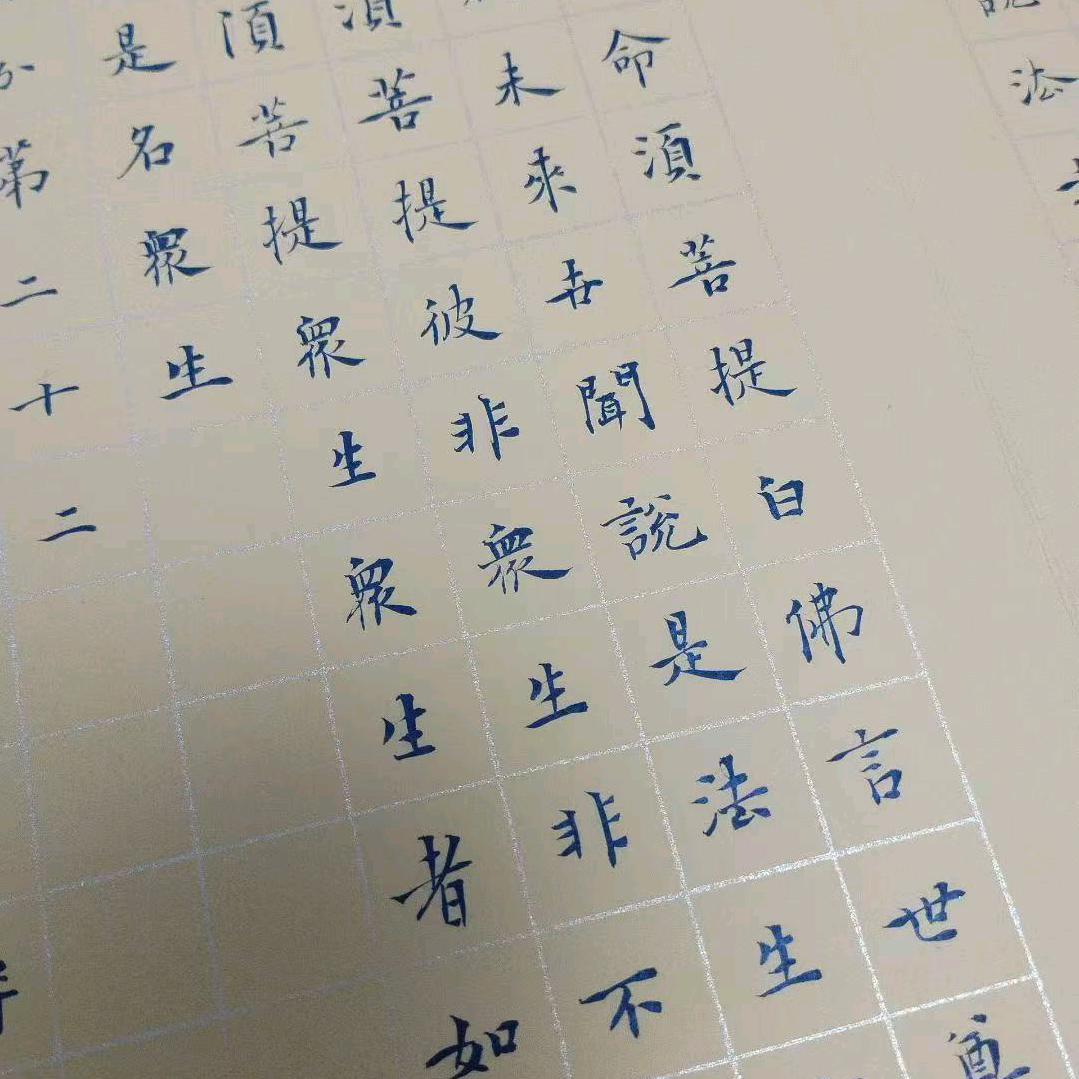 說法
命須菩提白佛言世尊
未來世聞說是法生
須菩提彼非眾生非不
須菩提眾生眾生者如
是名眾生
分第二十二